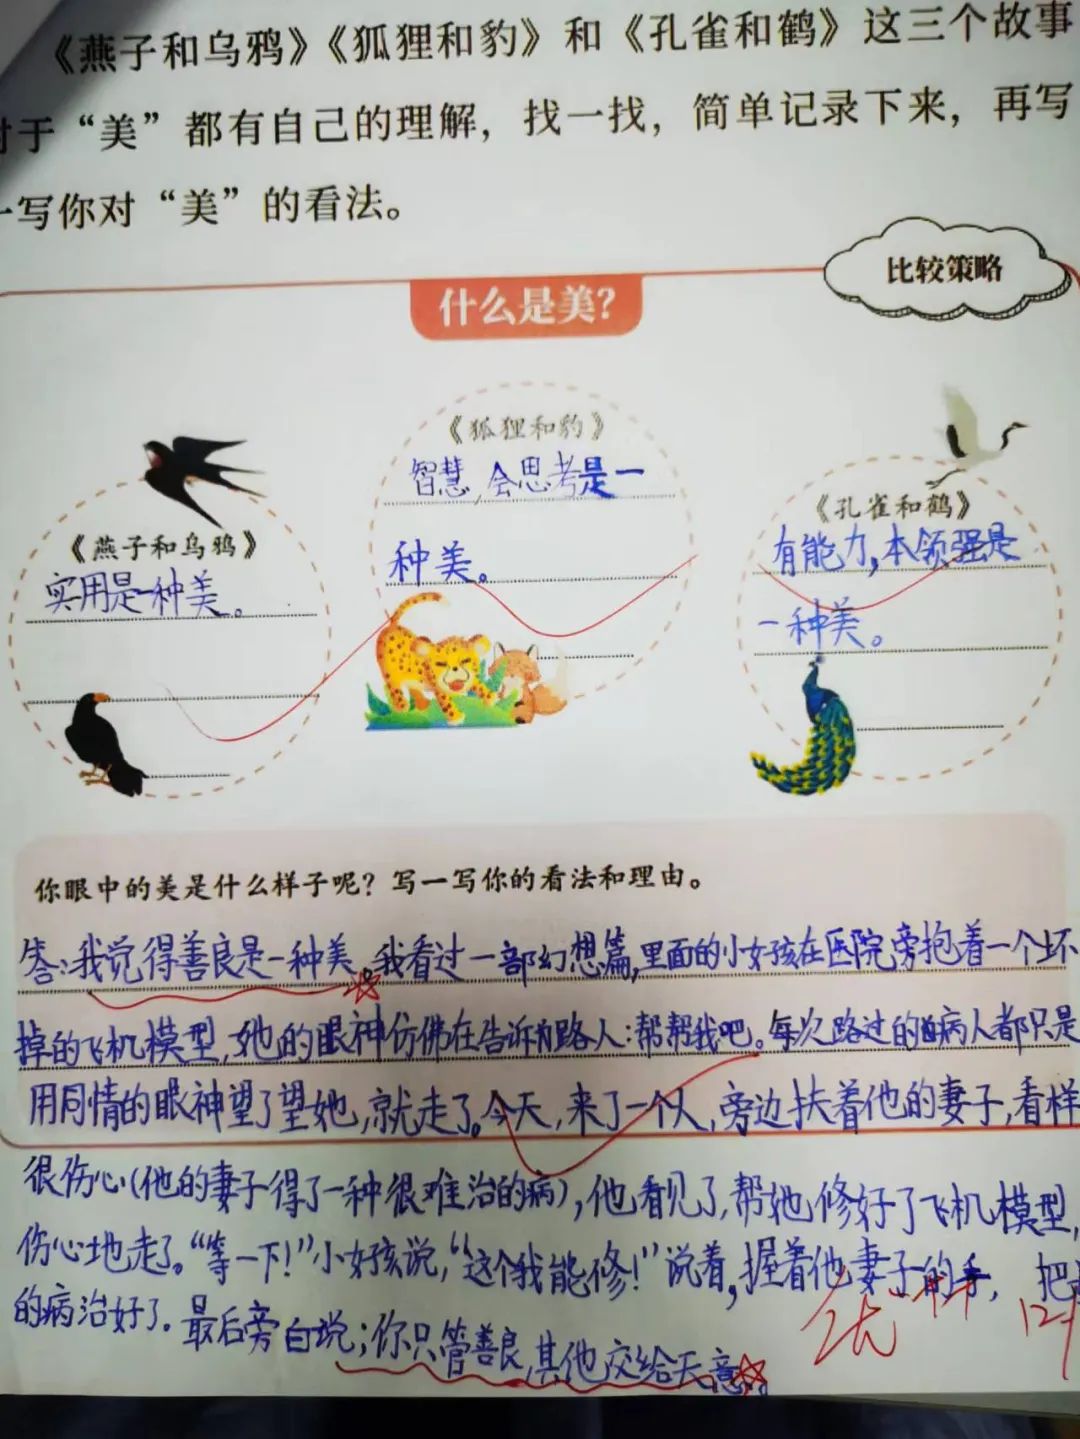 《燕子和乌鸦》《狐狸和豹》和《孔雀和鹤》这三个故事
对于“美”都有自己的理解，找一找，简单记录下来，再写
一写你对“美”的看法。
比较策略
什么是美？
《狐狸和豹》
智慧，会思考是一
种美。
《孔雀和鹤》
有能力，本领强是
一种美。
《燕子和乌鸦》
实用是一种美。
你眼中的美是什么样子呢？写一写你的看法和理由。
答：我觉得善良是一种美。我看过一部幻想篇，里面的小女孩在医院旁抱着一个坏
掉的飞机模型，她的眼神仿佛在告诉路人：帮帮我吧。每次路过的病人都只是
用同情的眼神望了望她，就走了。今天，来了一个人，旁边扶着他的妻子，看样
很伤心（他的妻子得了一种很难治的病），他看见了，帮她修好了飞机模型，
伤心地走了。“等一下！”小女孩说，“这个我能修！”说着，握着他妻子的手，把
的病治好了。最后旁白说；你只管善良，其他交给天意。
优